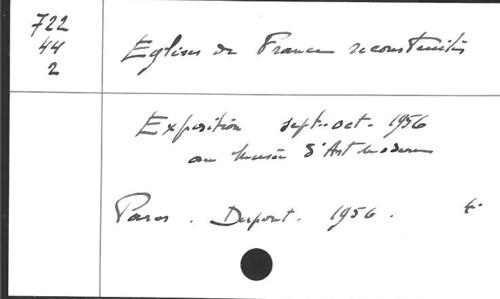 722
44
2
Eglises de France reconstruites
Exposition sept.-oct. 1956
au Musée d'Art Moderne
Paris. Dupont. 1956. 4°